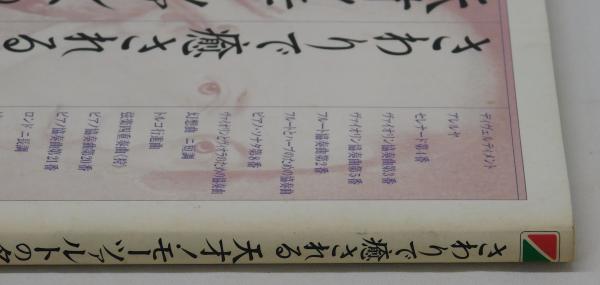 さわりで癒される
天才・モーツァ
ディヴェルティメント
アレルヤ
セレナード第4番
ヴァイオリン協奏曲第3番
ヴァイオリン協奏曲第5番
フルート協奏曲第2番
フルートとハープのための協奏曲
ピアノ・ソナタ第8番
ヴァイオリンとヴィオラのための協奏曲
幻想曲 ニ短調
トルコ行進曲
弦楽四重奏曲《狩》
ピアノ協奏曲第20番
ピアノ協奏曲第21番
ロンド ニ長調
さわりで癒される 天才・モーツァルトの